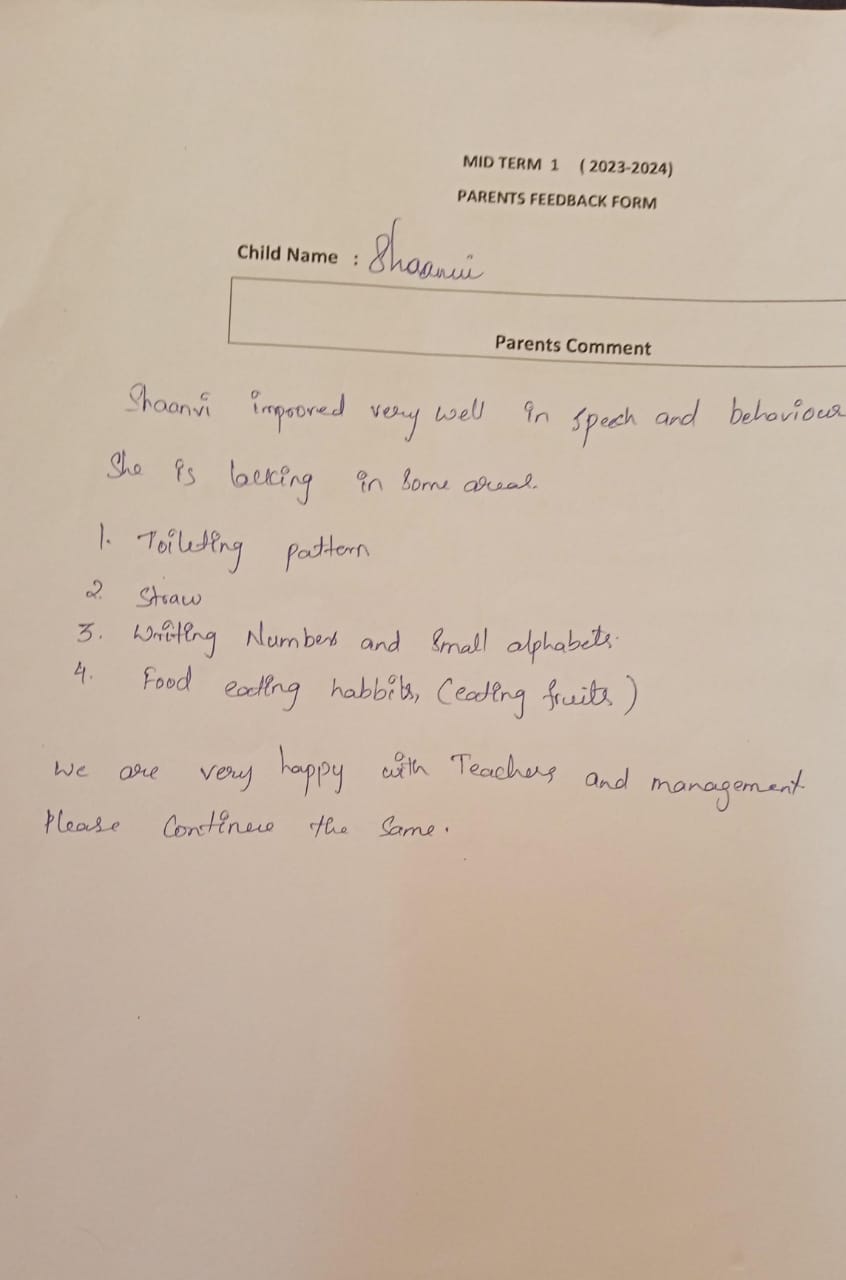 MID TERM 1 ( 2023-2024)
PARENTS FEEDBACK FORM
Child Name : Shaanvi
Parents Comment
Shaanvi improved very well in speech and behaviour
She is lacking in some areas.
1. Toileting pattern
2. Straw
3. Writing Numbers and Small alphabets.
4. Food eating habbits, (eating fruits)
We are very happy with Teachers and management
Please Continew the Same.